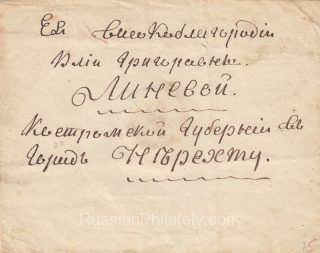 Ея высокоблагородии
Юліи Григоравне
Линевой.
Костромской Губерніи въ
Городъ Нѣрехту.
RussianPhilately.com